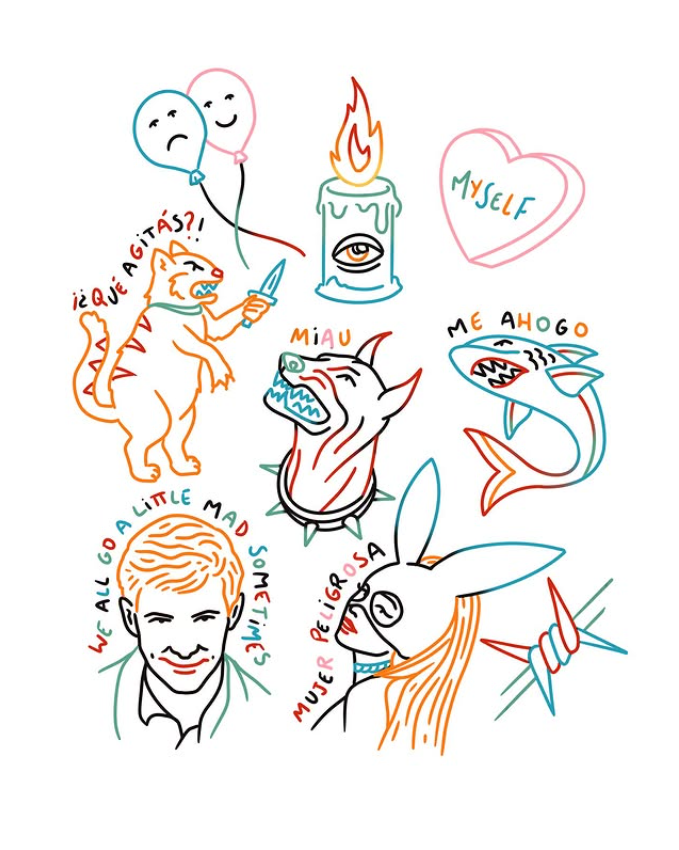 MYSELF
¡¿QUÉ AGITÁS?!
MIAU
ME AHOGO
WE ALL GO A LITTLE MAD SOMETIMES
MUJER PELIGROSA